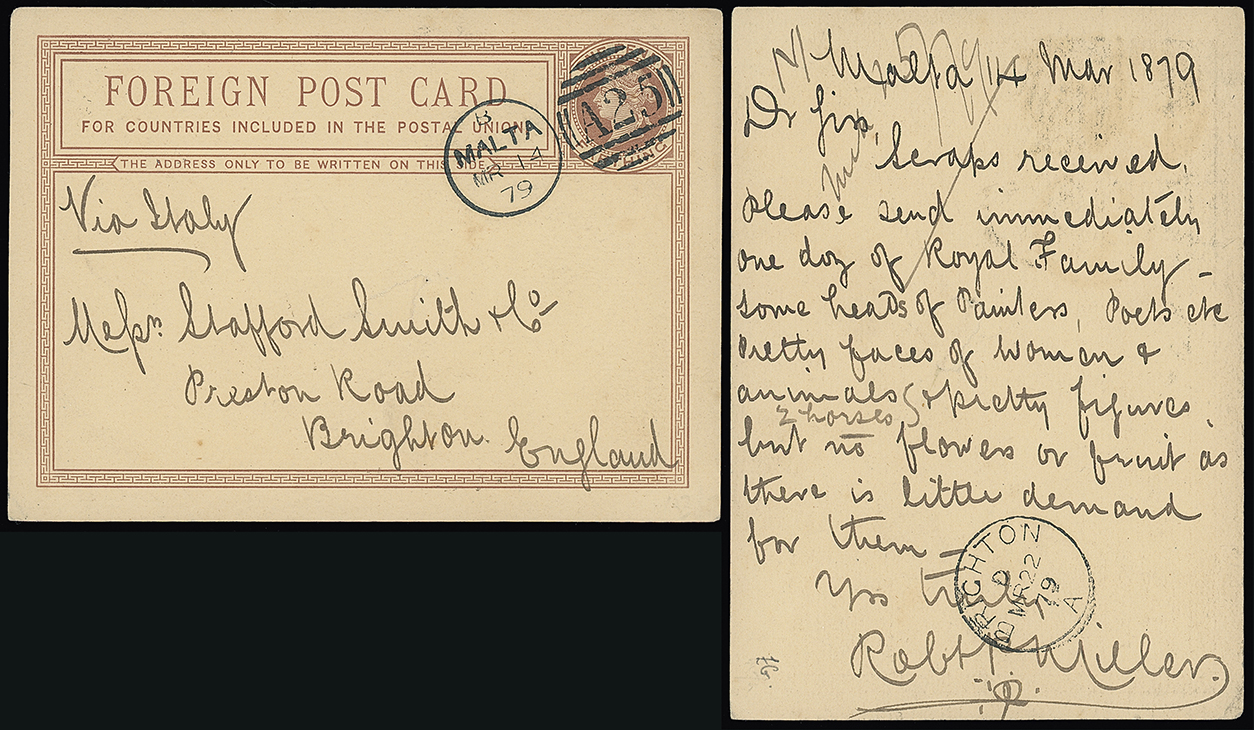 FOREIGN POST CARD
FOR COUNTRIES INCLUDED IN THE POSTAL UNION
THE ADDRESS ONLY TO BE WRITTEN ON THIS
B
MALTA
MR 14
79
A25
Via Italy
Messrs. Stafford Smith & Co
Preston Road
Brighton.
England
Malta 14 Mar 1879
Dr Sirs,
Scraps received,
Please send immediately
one doz of Royal Family -
some heads of Painters, Poets etc
Pretty faces of Women &
animals & pretty figures,
2 horses
but no flowers or fruit as
there is little demand
for them -
Yrs truly
Robt. Miller.
BRIGHTON
D
MR 22
79
A